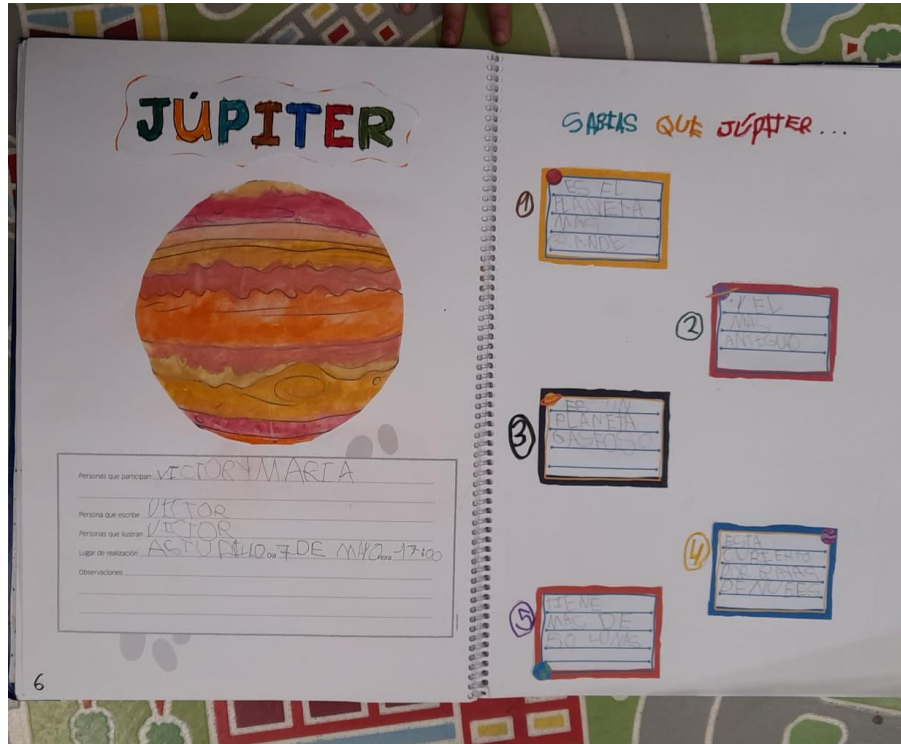 JÚPITER
Personas que participan VICTOR Y MARIA
Persona que escribe VICTOR
Personas que ilustran VICTOR
Lugar de realización ASTUDILLO Día 7 DE MAYO Hora 17:00
Observaciones
6
SABIAS QUE JÚPITER...
1
ES EL
PLANETA
MAS
GRANDE
2
Y EL
MAS
ANTIGUO
3
ES UN
PLANETA
GASEOSO
4
ESTA
CUBIERTO
POR RAYAS
DE NUBES
5
TIENE
MAS DE
50 LUNAS